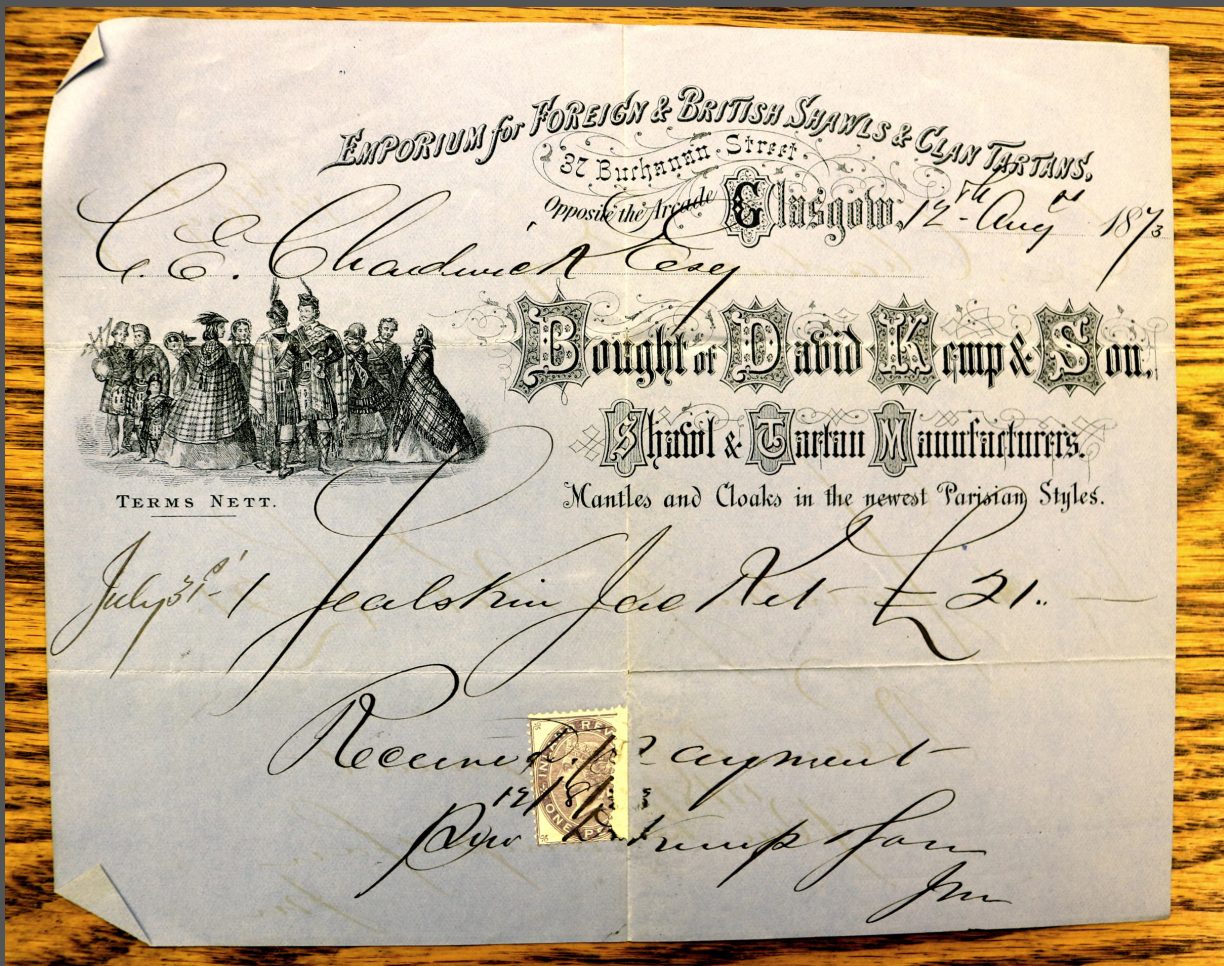 EMPORIUM for FOREIGN & BRITISH SHAWLS & CLAN TARTANS.
37 Buchanan Street.
Opposite the Arcade Glasgow, 12th Aug 1873
C. E. Chadwick Esq
Bought of David Kemp & Son.
Shawl & Tartan Manufacturers.
Mantles and Cloaks in the newest Parisian Styles.
TERMS NETT.
July 31st 1 Sealskin Jacket £21..—
Received Payment
INLAND REV
ONE P
12/8/73
Kemp & Son